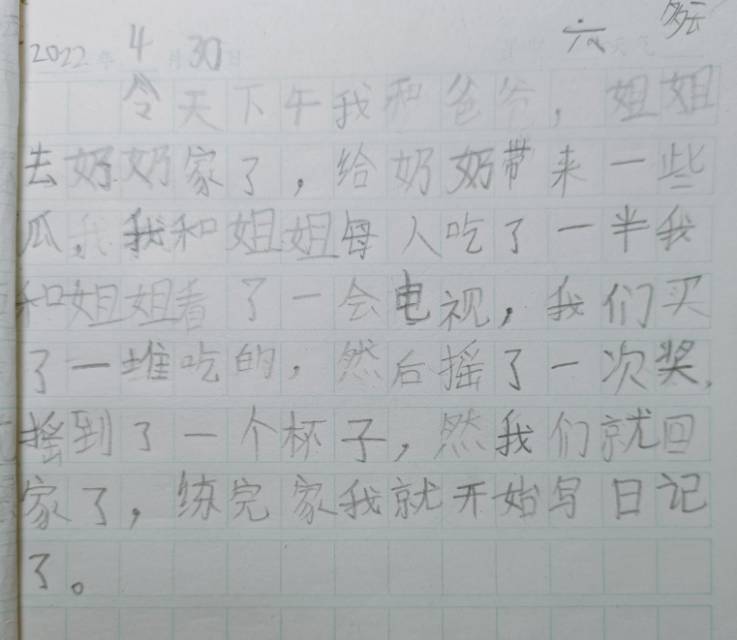 2022年4月30日 六 多云
今天下午我和爸爸，姐姐
去奶奶家了，给奶奶带来一些
瓜，我我和姐姐每人吃了一半我
和姐姐看了一会电视，我们买
了一堆吃的，然后摇了一次奖，
摇到了一个杯子，然我们就回
家了，练完家我就开始写日记
了。